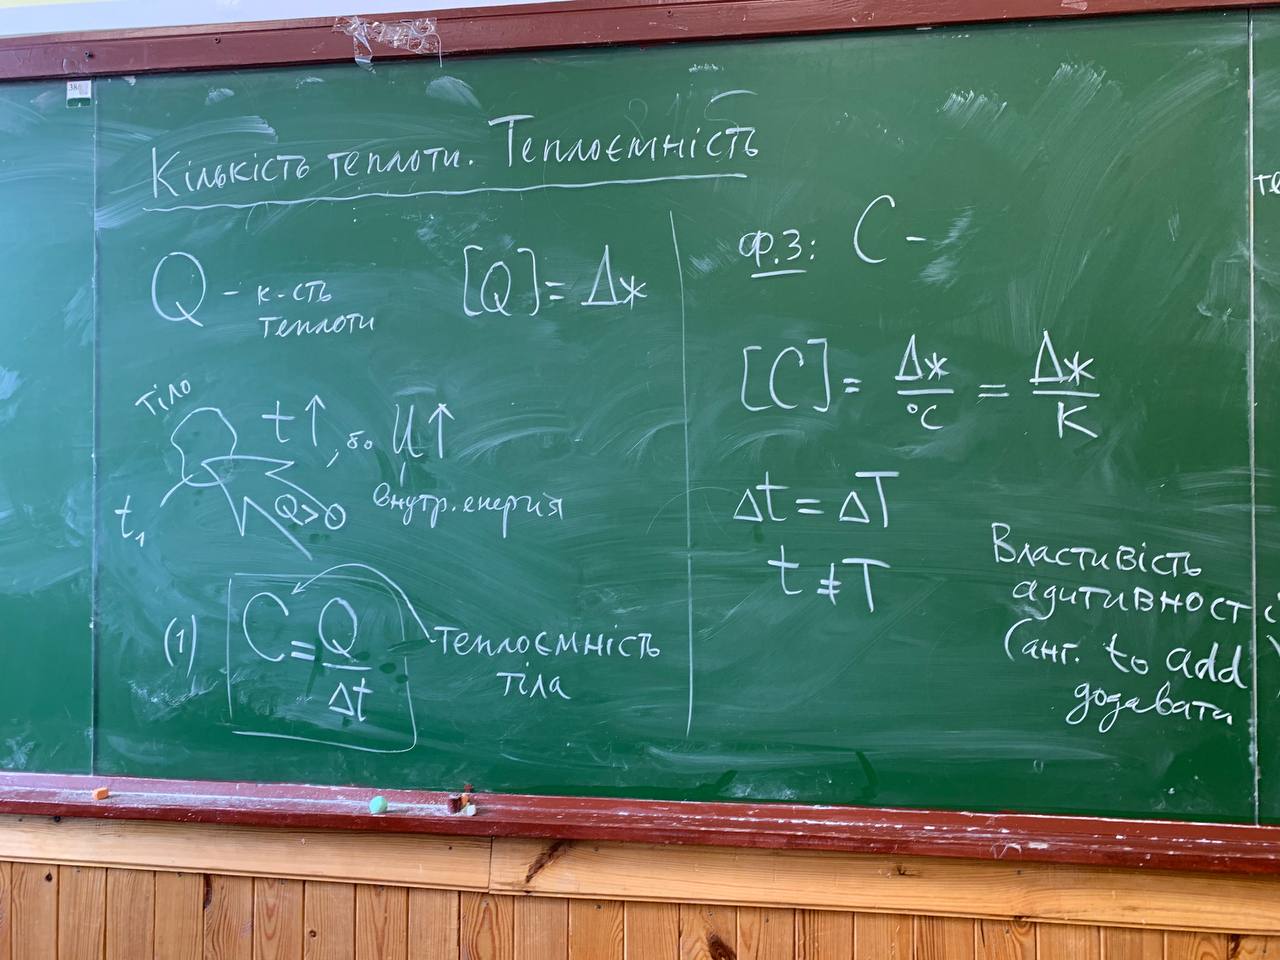 Кількість теплоти. Теплоємність
Q - к-сть
теплоти
[Q] = Дж
тіло
t↑, бо U↑
внутр. енергия
t₁
Q>0
(1) C = Q/Δt
теплоємність
тіла
ф.з: C -
[C] = Дж/°C = Дж/K
Δt = ΔT
t ≠ T
Властивість
адитивності
(анг. to add)
додавати
те